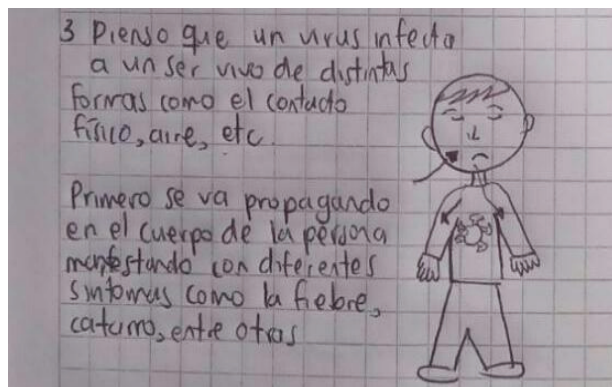 3 Pienso que un virus infecta
a un ser vivo de distintas
formas como el contacto
físico, aire, etc.
Primero se va propagando
en el cuerpo de la persona
manfestando con diferentes
sintomas como la fiebre,
catarro, entre otros